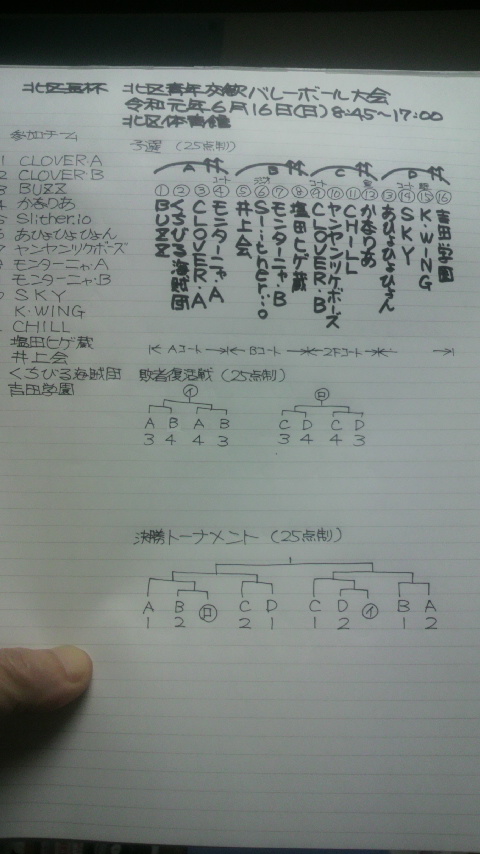 北区長杯 北区青年交歓バレーボール大会
令和元年6月16日(日) 8:45~17:00
北区体育館
参加チーム
1 CLOVER·A
2 CLOVER·B
3 BUZZ
4 かなりあ
5 Slither.io
6 あひょひょひょん
7 ヤンヤンツケボーズ
モンターニャ·A
モンターニャ·B
SKY
K·WING
CHILL
塩田ヒゲ蔵
井上会
くちびる海賊団
吉田学園
予選 (25点制)
A B C D
コート
① BUZZ
② くちびる海賊団
③ CLOVER·A
④ モンターニャ·A
⑤ 井上会
⑥ Slither.io
⑦ モンターニャ·B
⑧ 塩田ヒゲ蔵
⑨ CLOVER·B
⑩ ヤンヤンツケボーズ
⑪ CHILL
⑫ かなりあ
⑬ あひょひょひょん
⑭ SKY
⑮ K·WING
⑯ 吉田学園
Aコート Bコート 2Fコート
敗者復活戦 (25点制)
イ ロ
A B A B C D C D
3 4 4 3 3 4 4 3
決勝トーナメント (25点制)
A B ロ C D C D イ B A
1 2 2 1 1 2 1 2